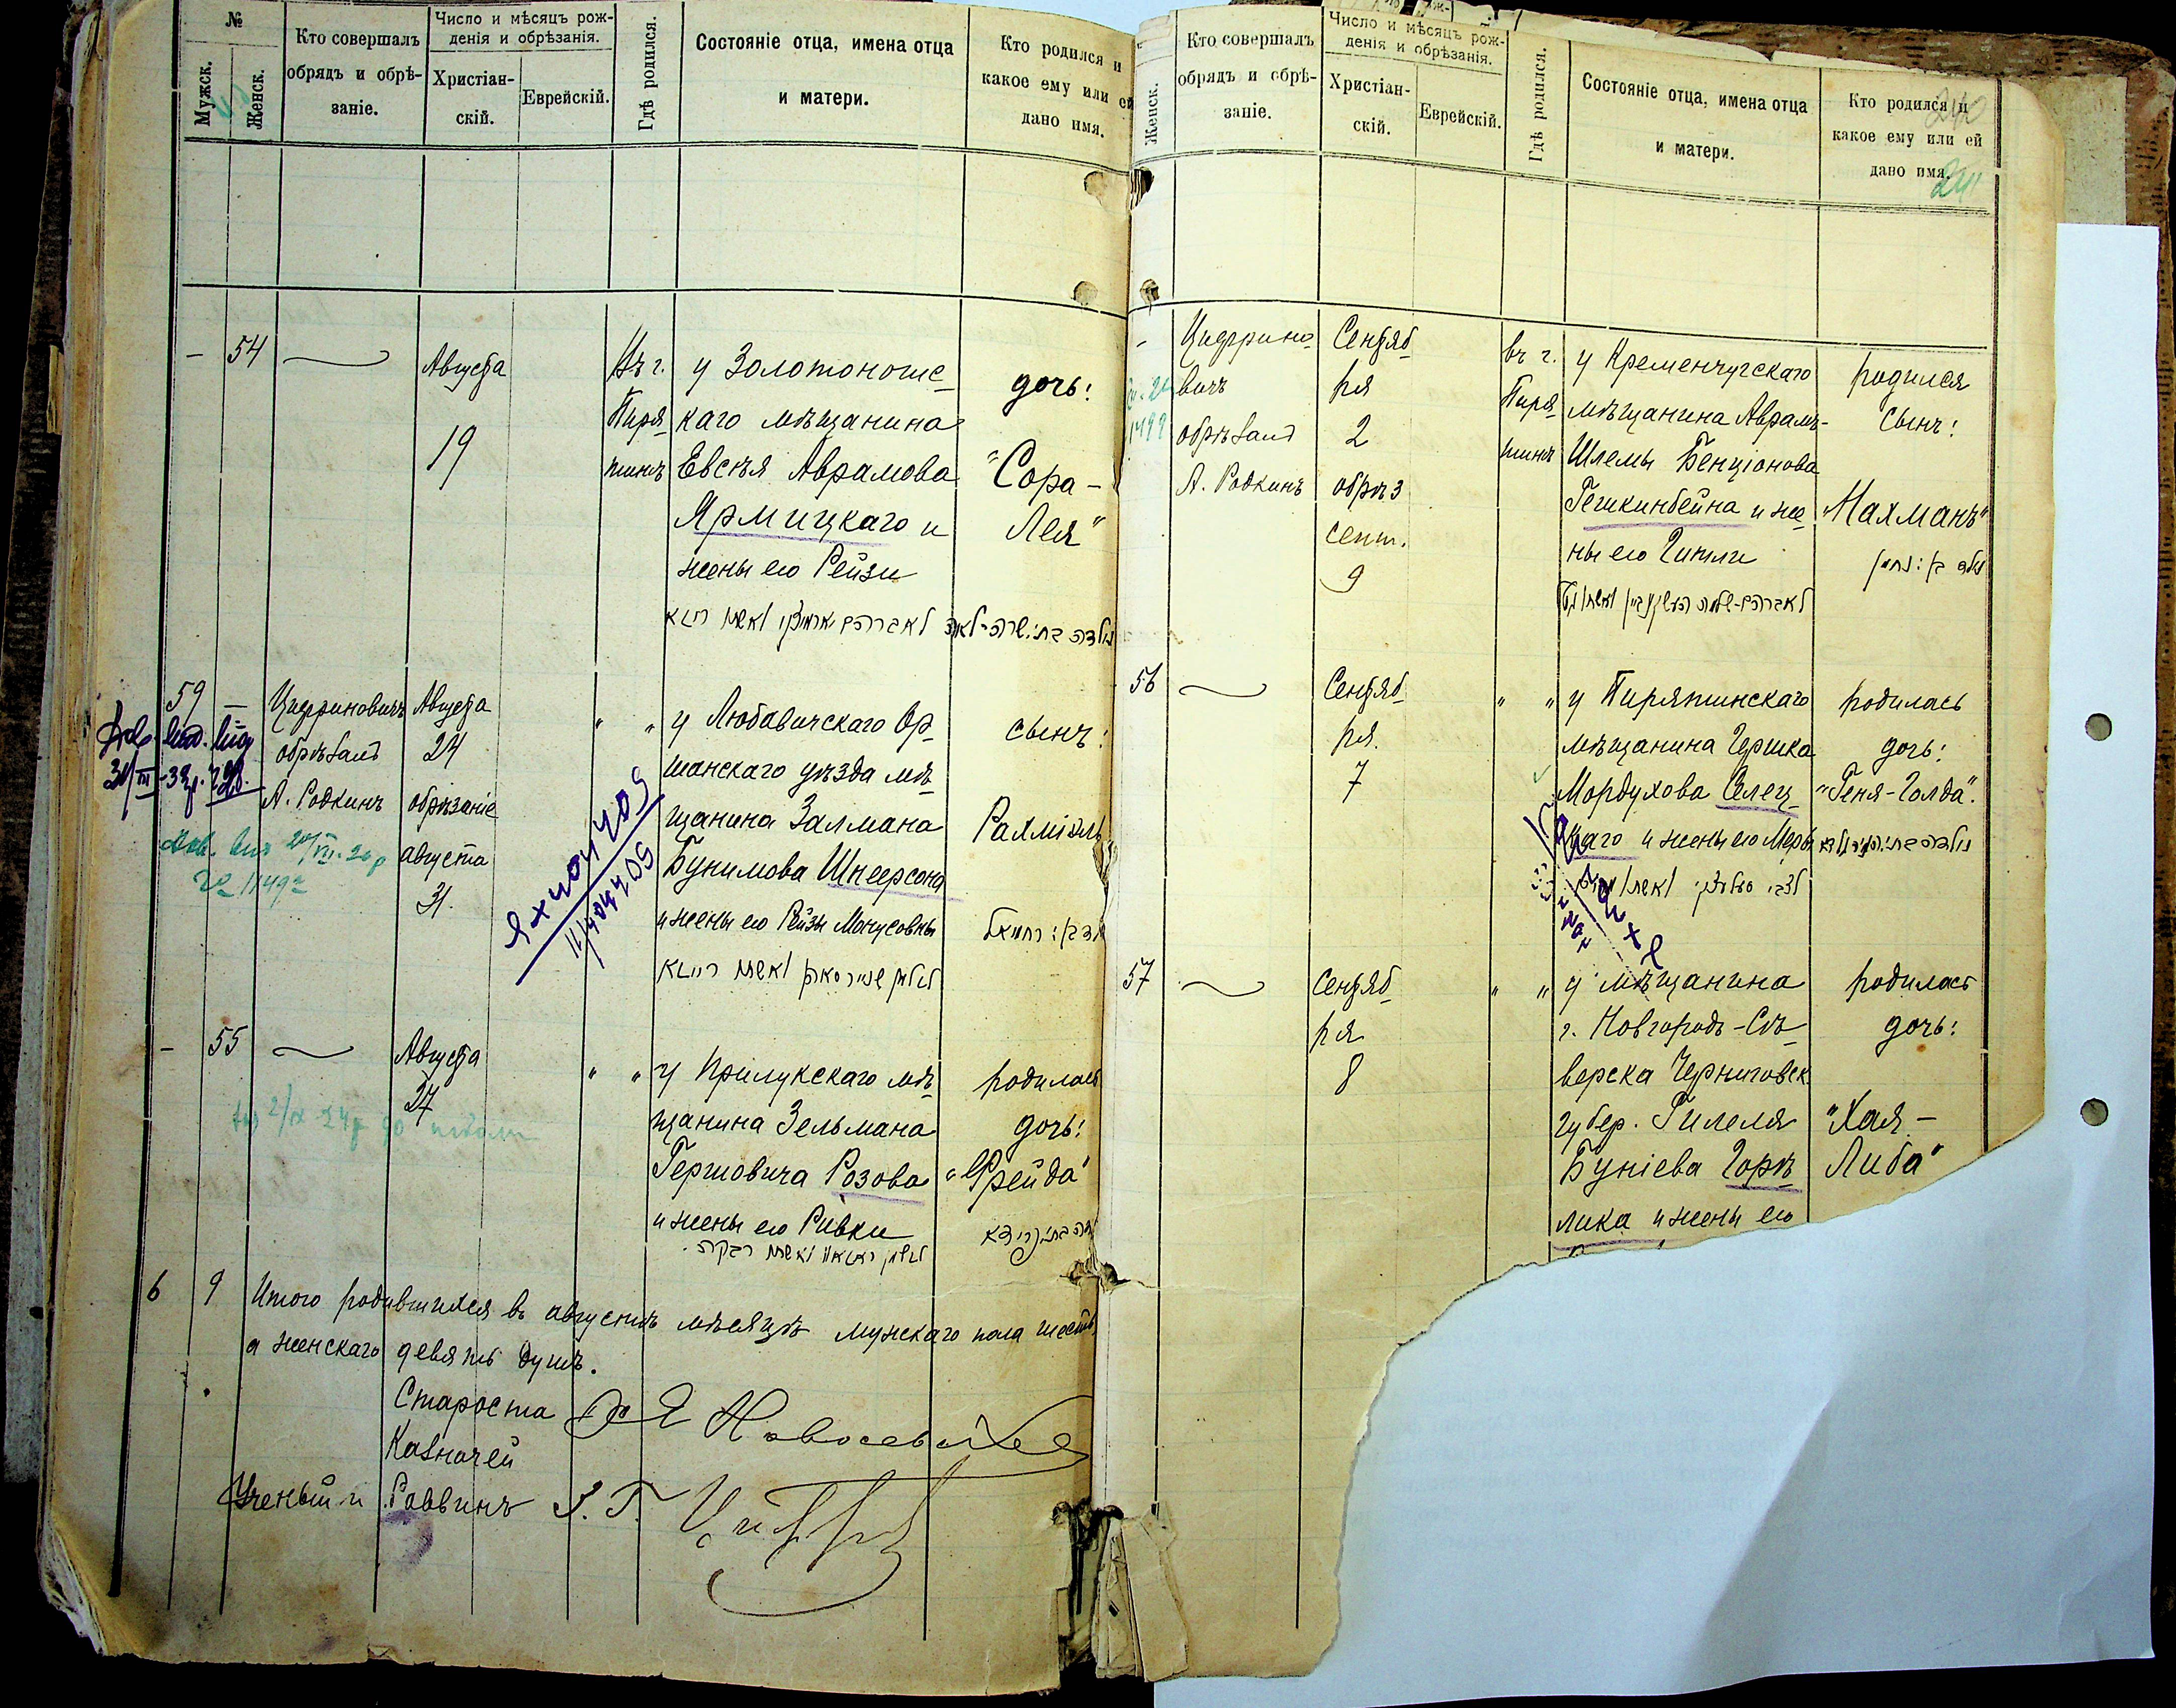 №
Мужск.
Женск.
Кто совершалъ
обрядъ и обрѣ-
заніе.
Число и мѣсяцъ рож-
денія и обрѣзанія.
Христіан-
скій.
Еврейскій.
Гдѣ родился.
Состояніе отца, имена отца
и матери.
Кто родился и
какое ему или ей
дано имя.
- 54
Августа
19
Въ г.
Пиря
тинѣ
у Золотоношс
каго мѣщанина
Евсѣя Аврамова
Ярмицкаго и
жены его Рейзи
дочь:
"Сора -
Лея"
59 -
Цифриновичъ
обрѣзалъ
А. Родкинъ
Августа
24
обрѣзаніе
августа
31.
" "
у Любавичскаго Ор
шанскаго уѣзда мѣ
щанина Залмана
Бунимова Шнеерсона
и жены его Рейзы Монусовны
сынъ:
Рахміель
- 55
Августа
27
" "
у Прилукскаго мѣ
щанина Зельмана
Гершовича Розова
и жены его Ривки
родилась
дочь:
"Фрейда"
6 9 Итого родившихся въ августѣ мѣсяцѣ мужскаго пола шесть,
а женскаго девять душъ.
Староста
Казначей
Ученый и Раввинъ
Женск.
Кто совершалъ
обрядъ и обрѣ-
заніе.
Число и мѣсяцъ рож-
денія и обрѣзанія.
Христіан-
скій.
Еврейскій.
Гдѣ родился.
Состояніе отца, имена отца
и матери.
Кто родился и
какое ему или ей
дано имя.
240
241
-
Цифрино
вичъ
обрѣзалъ
А. Родкинъ
Сентяб
ря
2
обрѣз
сент.
9
въ г.
Пиря
тинѣ
у Кременчугскаго
мѣщанина Аврамъ-
Шлемы Бенціонова
Гешкинбейна и же
ны его Гитли
родился
сынъ:
"Нахманъ"
56
Сентяб
ря.
7
" "
у Пирятинскаго
мѣщанина Гершка
Мордухова Селец
каго и жены его Меры
родилась
дочь:
"Геня-Голда".
57
Сентяб
ря
8
" "
у мѣщанина
г. Новгородъ-Сѣ
верска Черниговск.
губер. Гилеля
Буніева Горѣ
лика и жены его
родилась
дочь:
"Хая -
Либа"